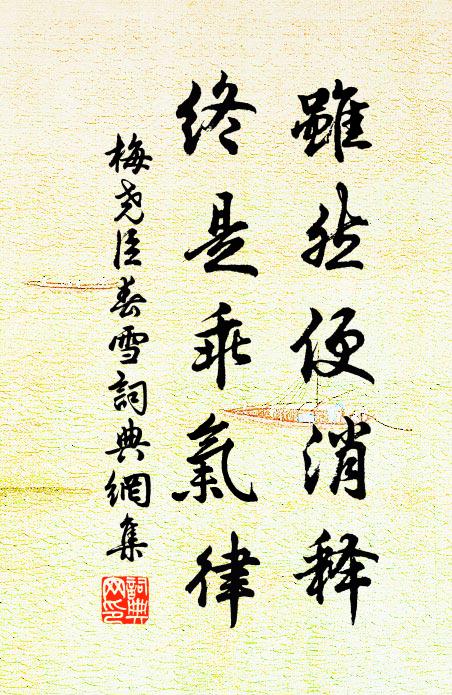 雖然便消释
終是乖氣律
梅尧臣春雪詞典網集
詞典网印